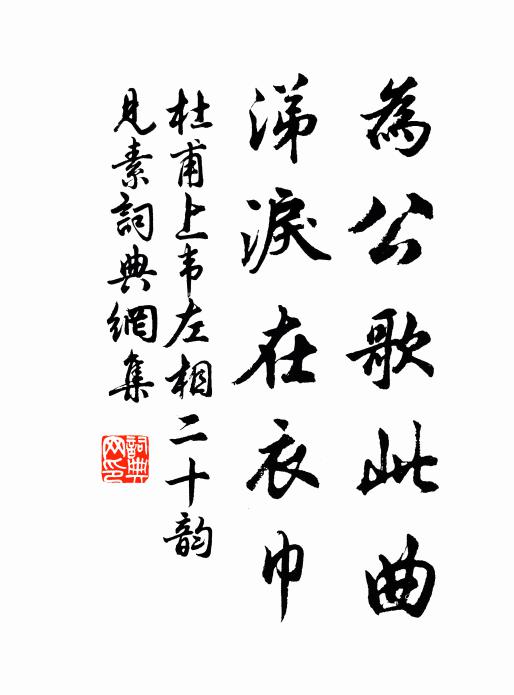 為公歌此曲
涕淚在衣巾
杜甫上韦左相二十韵
見素詞典網集
詞典网印